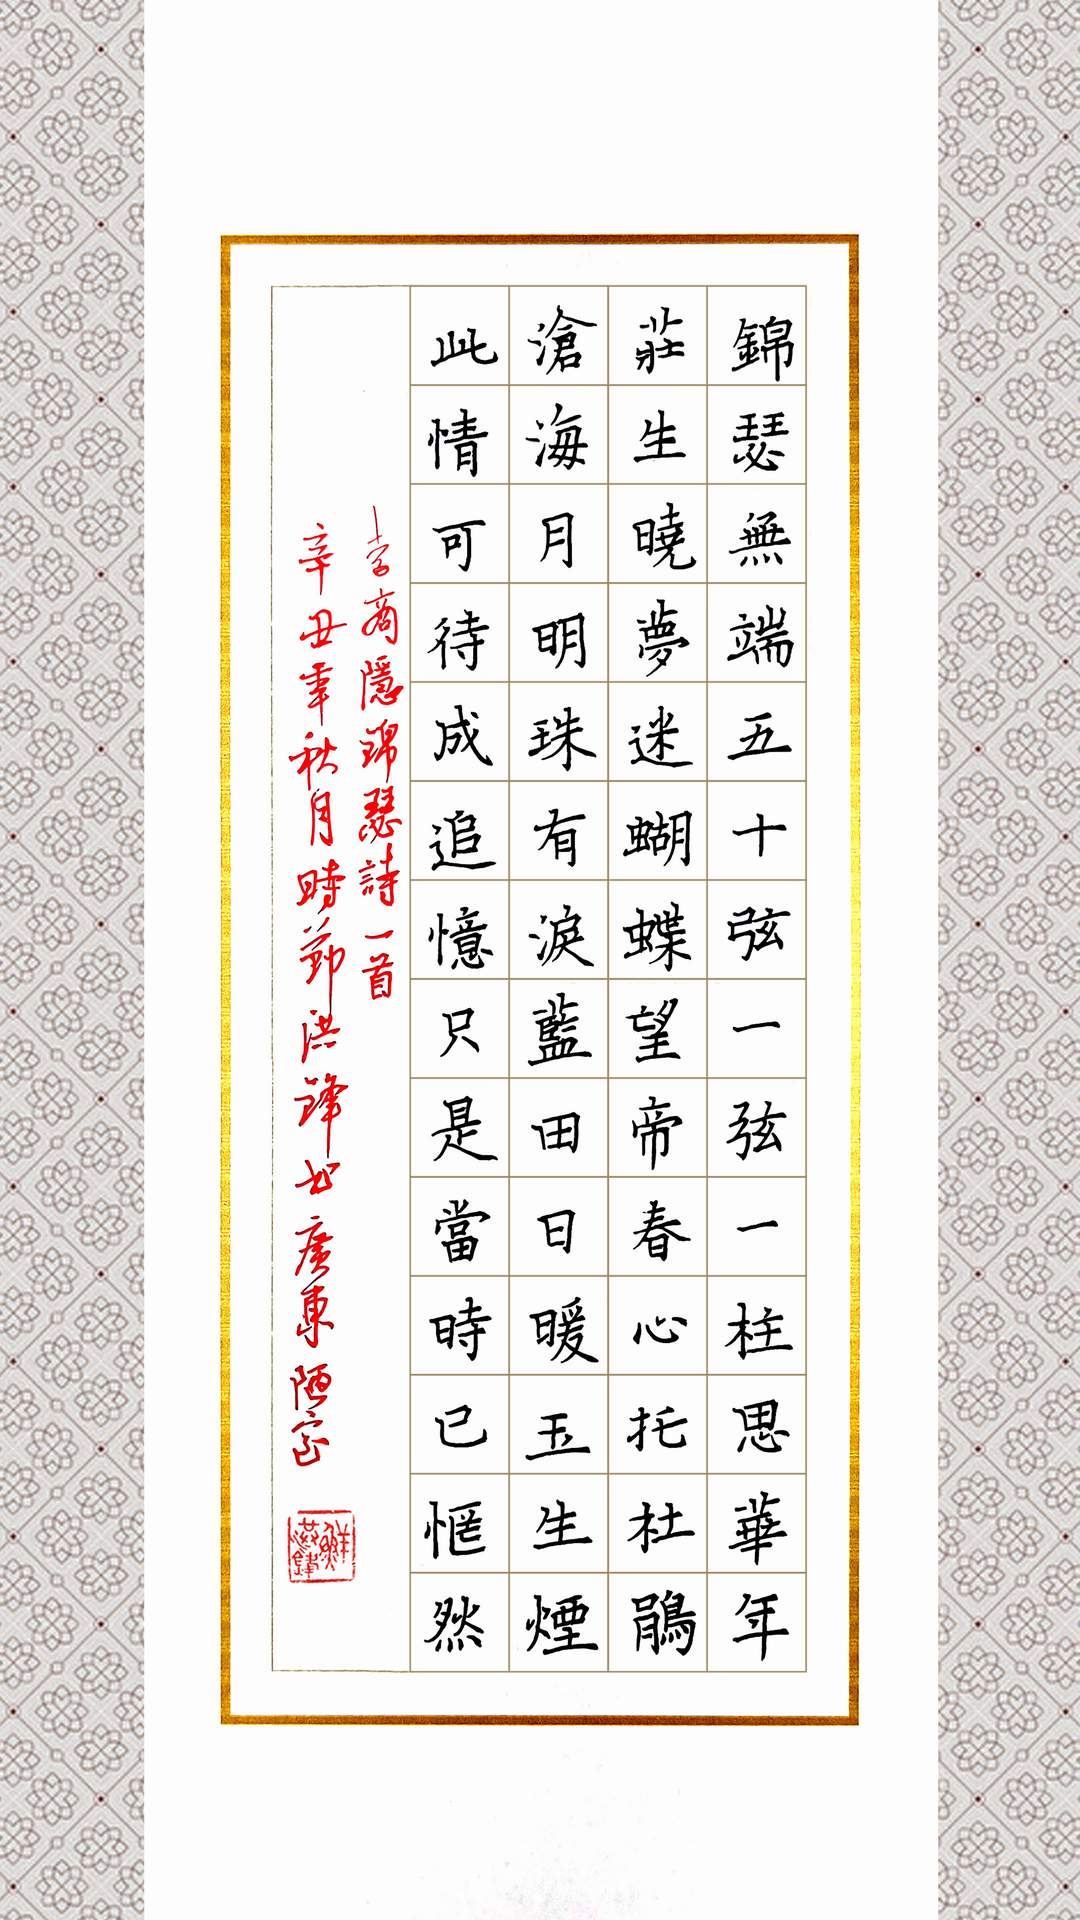 錦瑟無端五十弦一弦一柱思華年
莊生曉夢迷蝴蝶望帝春心托杜鵑
滄海月明珠有淚藍田日暖玉生煙
此情可待成追憶只是當時已惘然
李商隱錦瑟詩一首
辛丑年秋月時節洪鋒书廣東陋室
鮮洪鋒